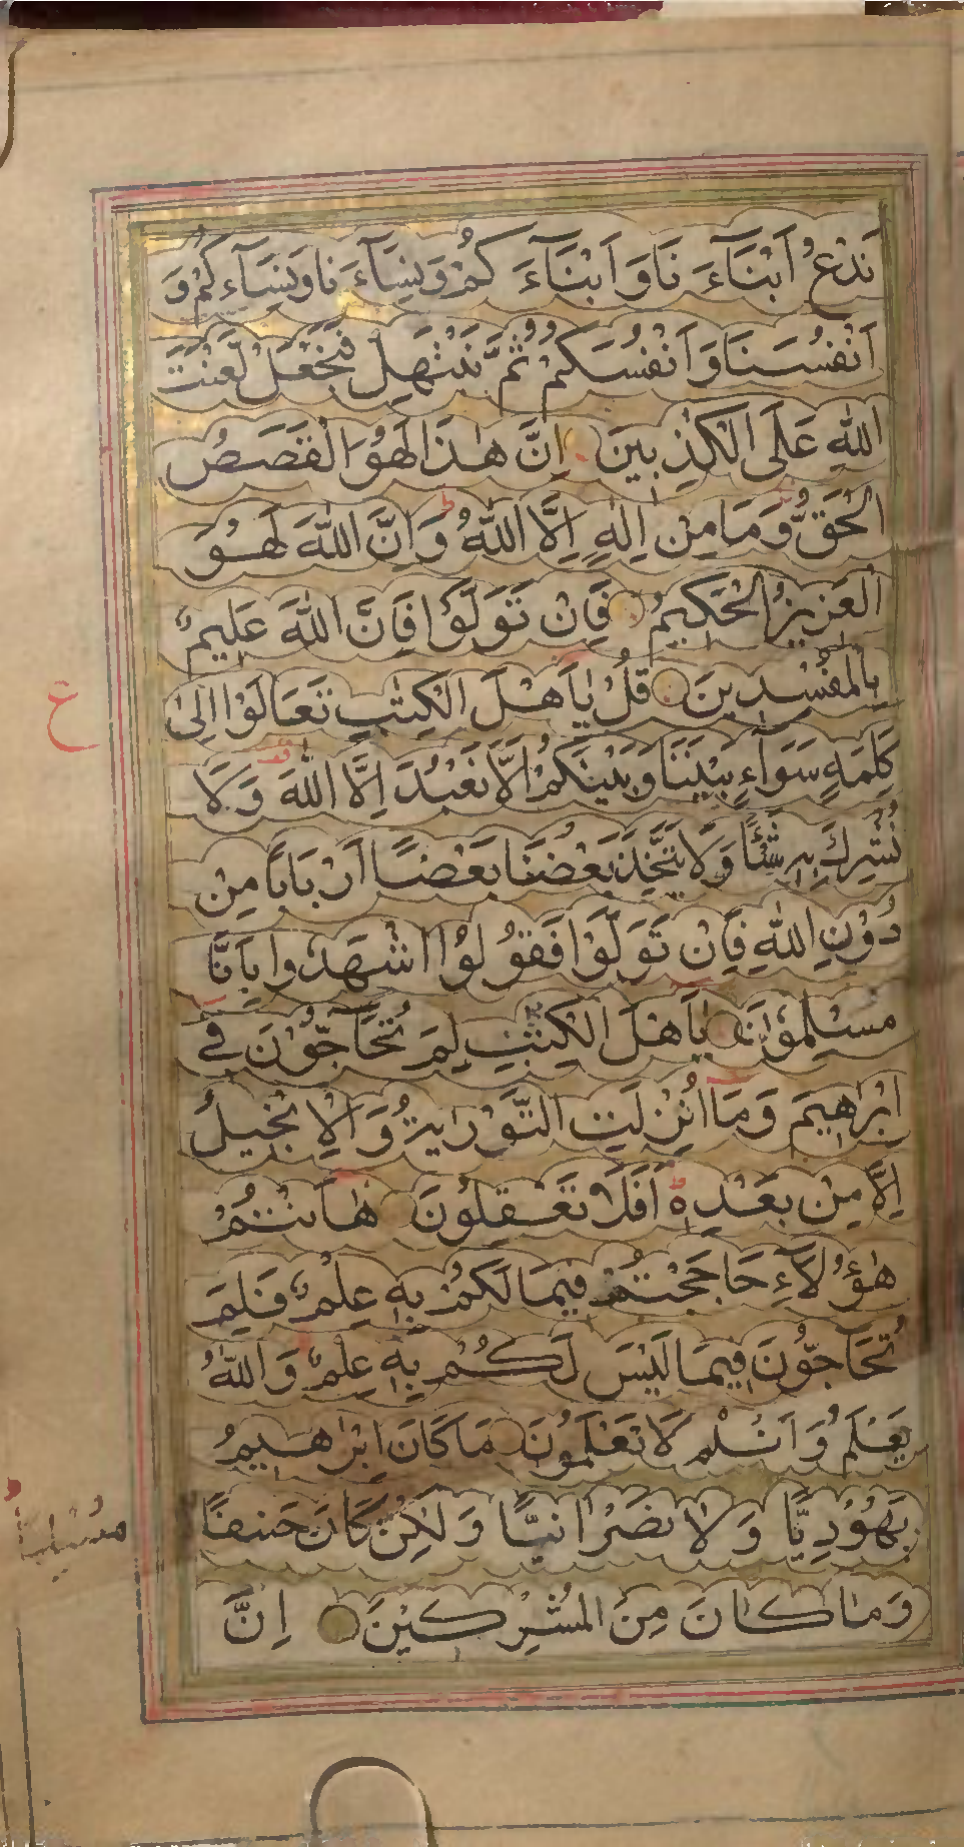 نَدْعُ اَبْنَآءَ نَا وَ اَبْنَآءَ كُمْ وَ نِسَآءَ نَا وَ نِسَآءِ كُمْ وَ
اَنْفُسَنَا وَ اَنْفُسَكُمْ ثُمَّ نَبْتَهِلْ فَنَجْعَلْ لَعْنَتَ
اللّٰهِ عَلَى الْكٰذِبِينَ اِنَّ هٰذَا لَهُوَ الْقَصَصُ
الْحَقُّ وَ مَا مِنْ اِلٰهٍ اِلَّا اللّٰهُ وَ اِنَّ اللّٰهَ لَهُوَ
الْعَزِيزُ الْحَكِيمُ فَاِنْ تَوَلَّوْا فَاِنَّ اللّٰهَ عَلِيمٌ
بِالْمُفْسِدِينَ قُلْ يٰاَهْلَ الْكِتٰبِ تَعَالَوْا اِلٰى
كَلِمَةٍ سَوَآءٍ بَيْنَنَا وَ بَيْنَكُمْ اَلَّا نَعْبُدَ اِلَّا اللّٰهَ وَ لَا
نُشْرِكَ بِهٖ شَئًْا وَ لَا يَتَّخِذَ بَعْضُنَا بَعْضًا اَرْبَابًا مِنْ
دُوْنِ اللّٰهِ فَاِنْ تَوَلَّوْا فَقُولُوْا اشْهَدُوا بِاَنَّا
مُسْلِمُوْنَ يٰاَهْلَ الْكِتٰبِ لِمَ تُحَآجُّوْنَ فِي
اِبْرٰهِيمَ وَ مَا اُنْزِلَتِ التَّوْرٰيةُ وَ الْاِنْجِيلُ
اِلَّا مِنْ بَعْدِهٖ اَفَلَا تَعْقِلُونَ هٰاَنْتُمْ
هٰؤُلَآءِ حَاجَجْتُمْ فِيمَا لَكُمْ بِهٖ عِلْمٌ فَلِمَ
تُحَآجُّوْنَ فِيمَا لَيْسَ لَكُمْ بِهٖ عِلْمٌ وَ اللّٰهُ
يَعْلَمُ وَ اَنْتُمْ لَا تَعْلَمُوْنَ مَا كَانَ اِبْرٰهِيمُ
يَهُوْدِيًّا وَ لَا نَصْرَانِيًّا وَ لٰكِنْ كَانَ حَنِيفًا
وَ مَا كَانَ مِنَ الْمُشْرِكِيْنَ اِنَّ
ع